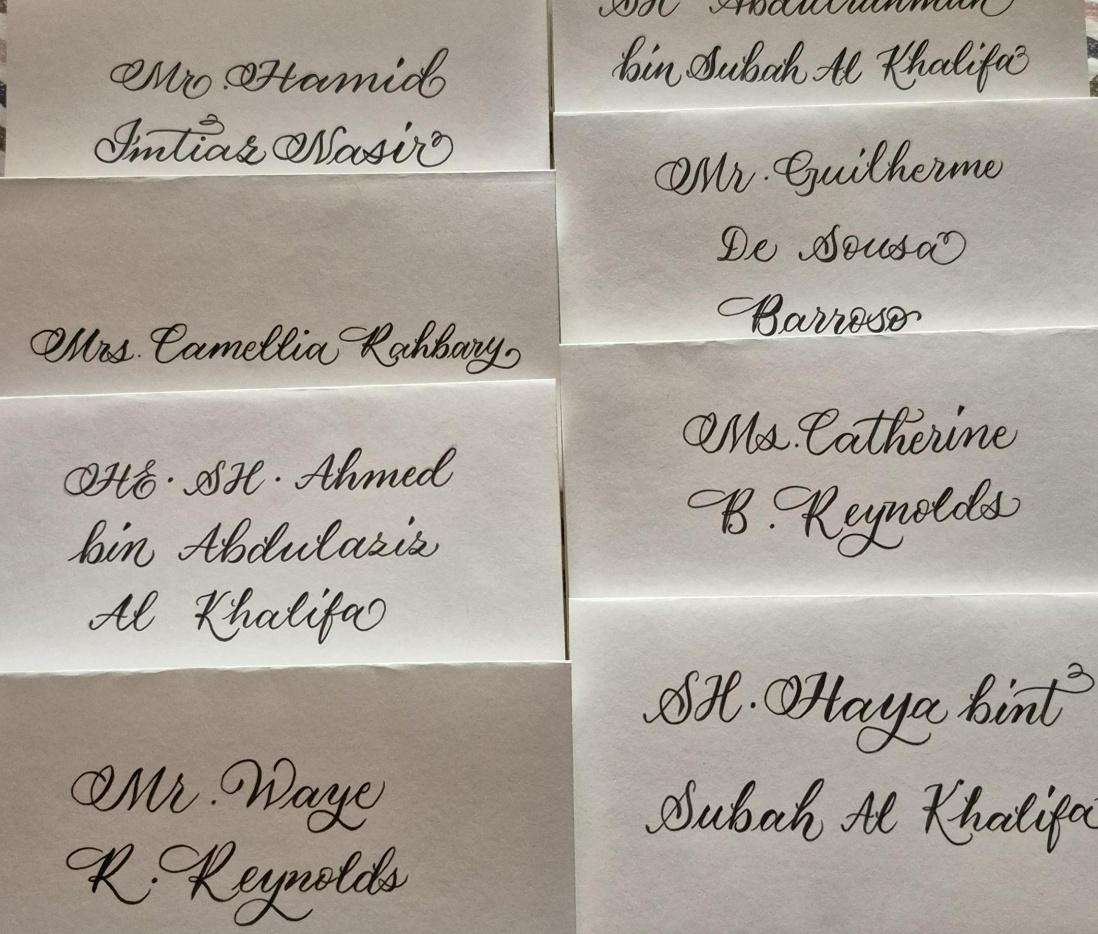 Mr. Hamid
Imtiaz Nasir
Mrs. Camellia Rahbary
HE. SH. Ahmed
bin Abdulaziz
Al Khalifa
Mr. Waye
R. Reynolds
SH Abdulrahman
bin Subah Al Khalifa
Mr. Guilherme
De Sousa
Barroso
Ms. Catherine
B. Reynolds
SH. Haya bint
Subah Al Khalifa